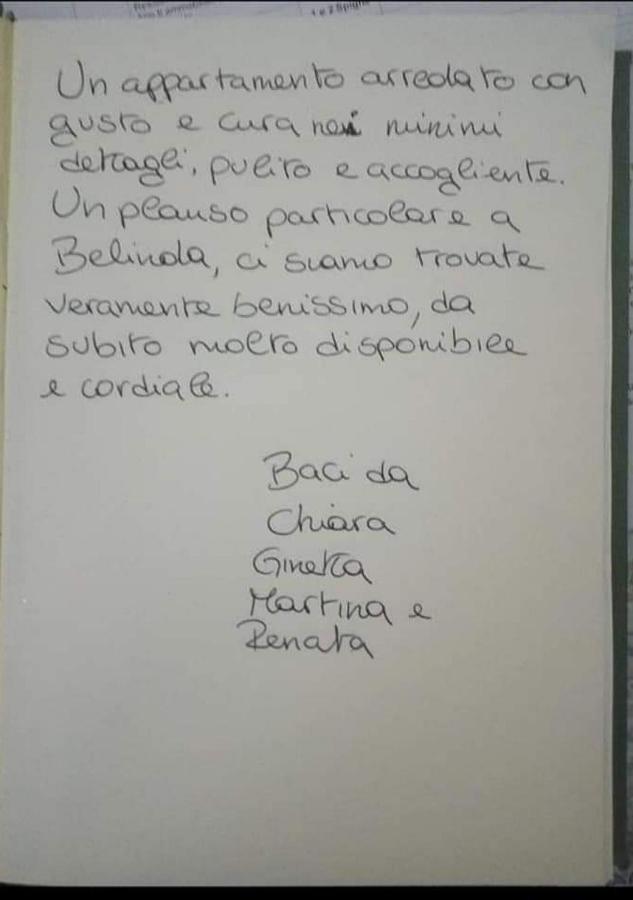 Un appartamento arredato con
gusto e cura nei minimi
dettagli, pulito e accogliente.
Un plauso particolare a
Belinda, ci siamo trovate
veramente benissimo, da
subito molto disponibile
e cordiale.
Baci da
Chiara
Ginetta
Martina e
Renata